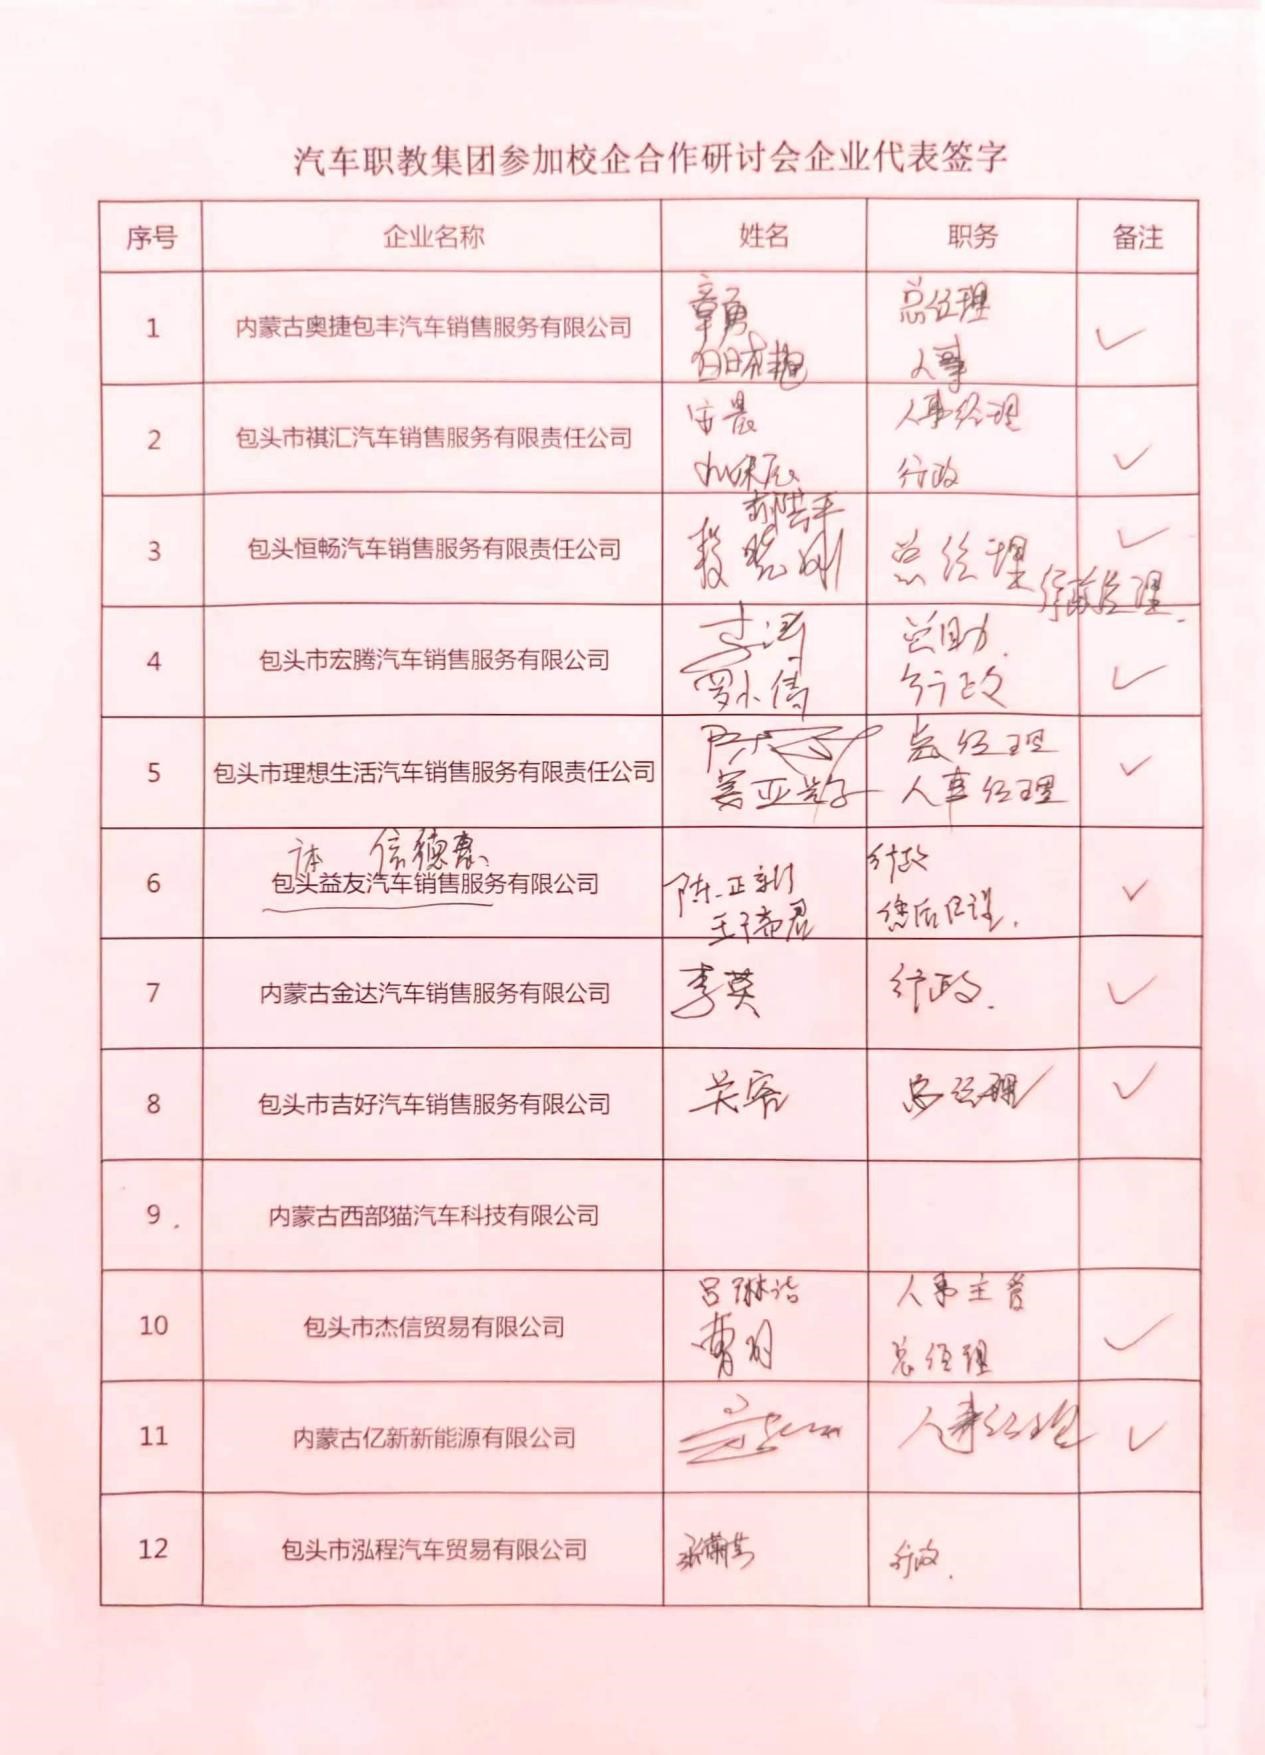 汽车职教集团参加校企合作研讨会企业代表签字
序号 企业名称 姓名 职务 备注
1 内蒙古奥捷包丰汽车销售服务有限公司 章勇 总经理
人事
2 包头市祺汇汽车销售服务有限责任公司 人事经理
行政
3 包头恒畅汽车销售服务有限责任公司 总经理 行政经理
4 包头市宏腾汽车销售服务有限公司 李涛 总助
罗小倩 行政
5 包头市理想生活汽车销售服务有限责任公司 总经理
人事经理
信德惠
6 包头益友汽车销售服务有限公司 陈正新 行政
7 内蒙古金达汽车销售服务有限公司 李英 行政
8 包头市吉好汽车销售服务有限公司 总经理
9 内蒙古西部猫汽车科技有限公司
10 包头市杰信贸易有限公司 吕琳洁 人事主管
总经理
11 内蒙古亿新新能源有限公司 人事经理
12 包头市泓程汽车贸易有限公司 行政